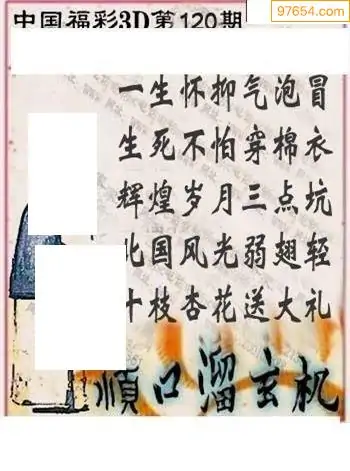 97654.com
中国福彩3D第120期
一生怀抑气泡冒
生死不怕穿棉衣
辉煌岁月三点坑
北国风光弱翅轻
十枝杏花送大礼
顺口溜玄机